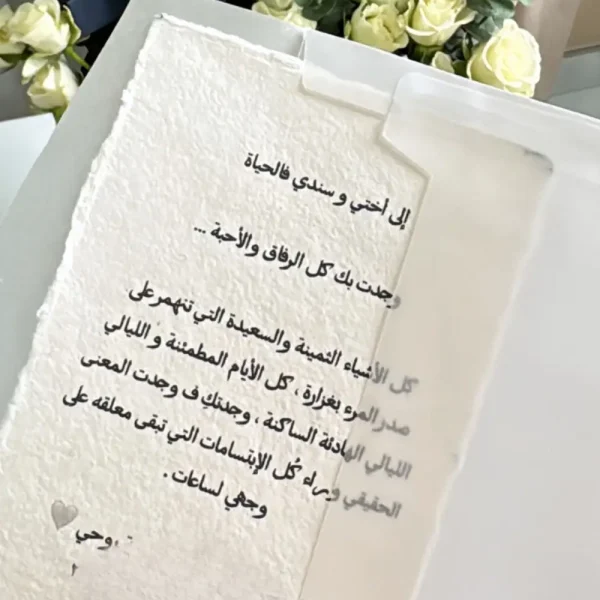 إلى أختي و سندي فالحياة
وجدت بك كل الرفاق والأحبة ...
كل الأشياء الثمينة والسعيدة التي تنهمر على
صدر المرء بغزارة ، كل الأيام المطمئنة و الليالي
الليالي الهادئة الساكنة ، وجدتكِ ف وجدت المعنى
الحقيقي وراء كُل الإبتسامات التي تبقى معلقه على
وجهي لساعات .